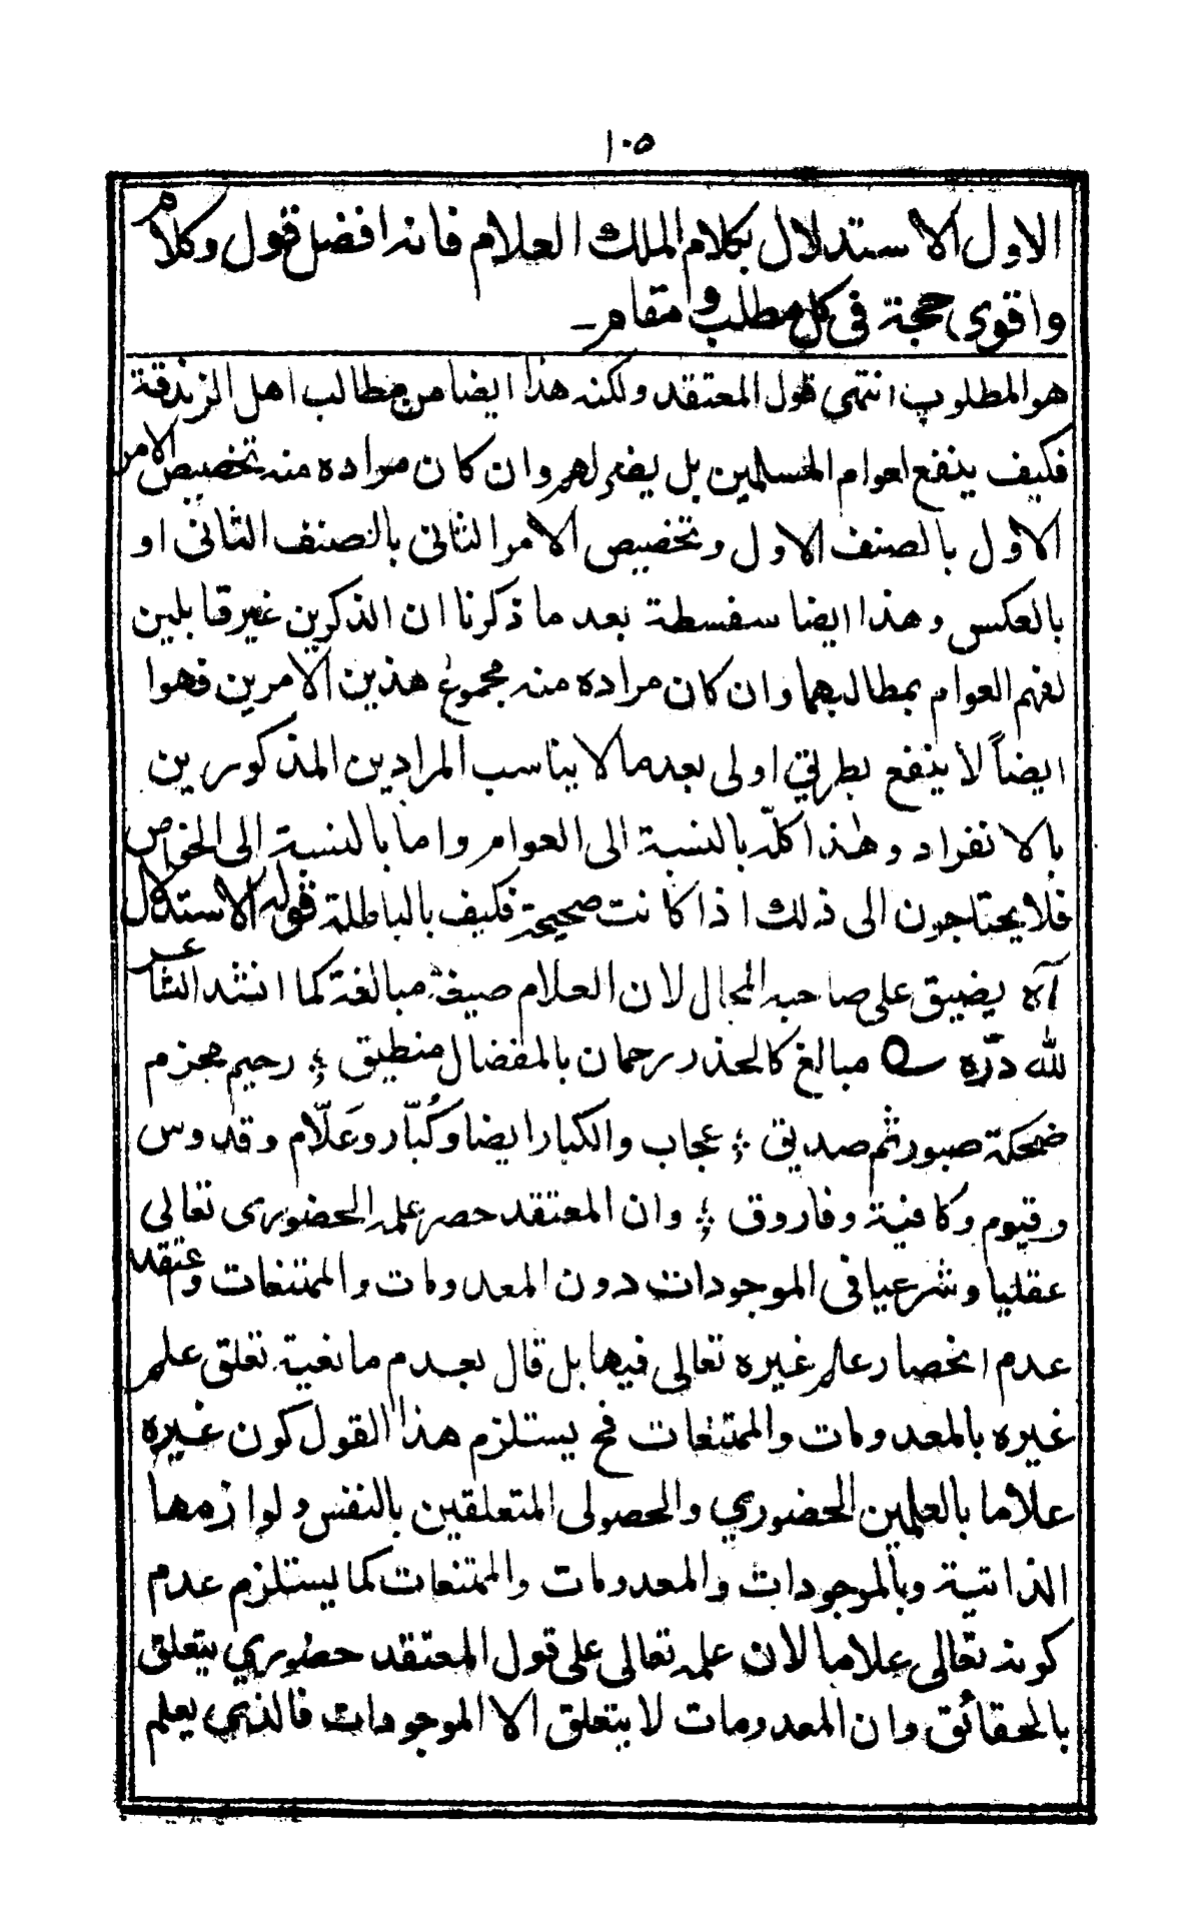 ١٠٥
الاول الاستدلال بكلام الملك العلام فانه افضل قول وكلام
واقوى حجة فى كل مطلب ومقام ـ
هو المطلوب انتهى قول المعتقد ولكنه هذا ايضا من مطالب اهل الزندقة
فكيف ينفع لعوام المسلمين بل يضر لهم وان كان مراده منه تخصيص الامر
الاول بالصنف الاول وتخصيص الامر الثانى بالصنف الثانى او
بالعكس وهذا ايضا سفسطة بعد ما ذكرنا ان الذكرين غير قابلين
لفهم العوام بمطالبهما وان كان مراده منه مجموع هذين الامرين فهوا
ايضاً لا ينفع بطريق اولى بعدما لا يناسب المرادين المذكورين
بالانفراد وهٰذا كلّه بالنسبة الى العوام واما بالنسبة الى الخواص
فلا يحتاجون الى ذلك اذا كانت صحيحة فكيف بالباطلة قوله الاستدلال
آه يضيق على صاحبه المجال لان العلام صيغة مبالغة كما انشد الشاعر
لله درّه مبالغ كالحذر رحمان بالمفضال منطيق ؛ رحيم مجزم
ضحكة صبور ثم صديق ؛ عجاب والكبار ايضا وكُبّار وعَلّام وقدوس
وقيوم وكافية وفاروق ؛ وان المعتقد حصر علمه الحضورى تعالى
عقليا وشرعيا فى الموجودات دون المعدومات والممتنعات واعتقد
عدم انحصار علم غيره تعالى فيها بل قال بعدم مانغية تعلق علم
غيره بالمعدومات والممتنعات فح يستلزم هذا القول كون غيره
علاما بالعلمين الحضوري والحصولى المتعلقين بالنفس ولوازمها
الذاتية وبالموجودات والمعدومات والممتنعات كما يستلزم عدم
كونه تعالى علاما لان علمه تعالى على قول المعتقد حضوري يتعلق
بالحقائق وان المعدومات لا يتعلق الا الموجودات فالذي يعلم